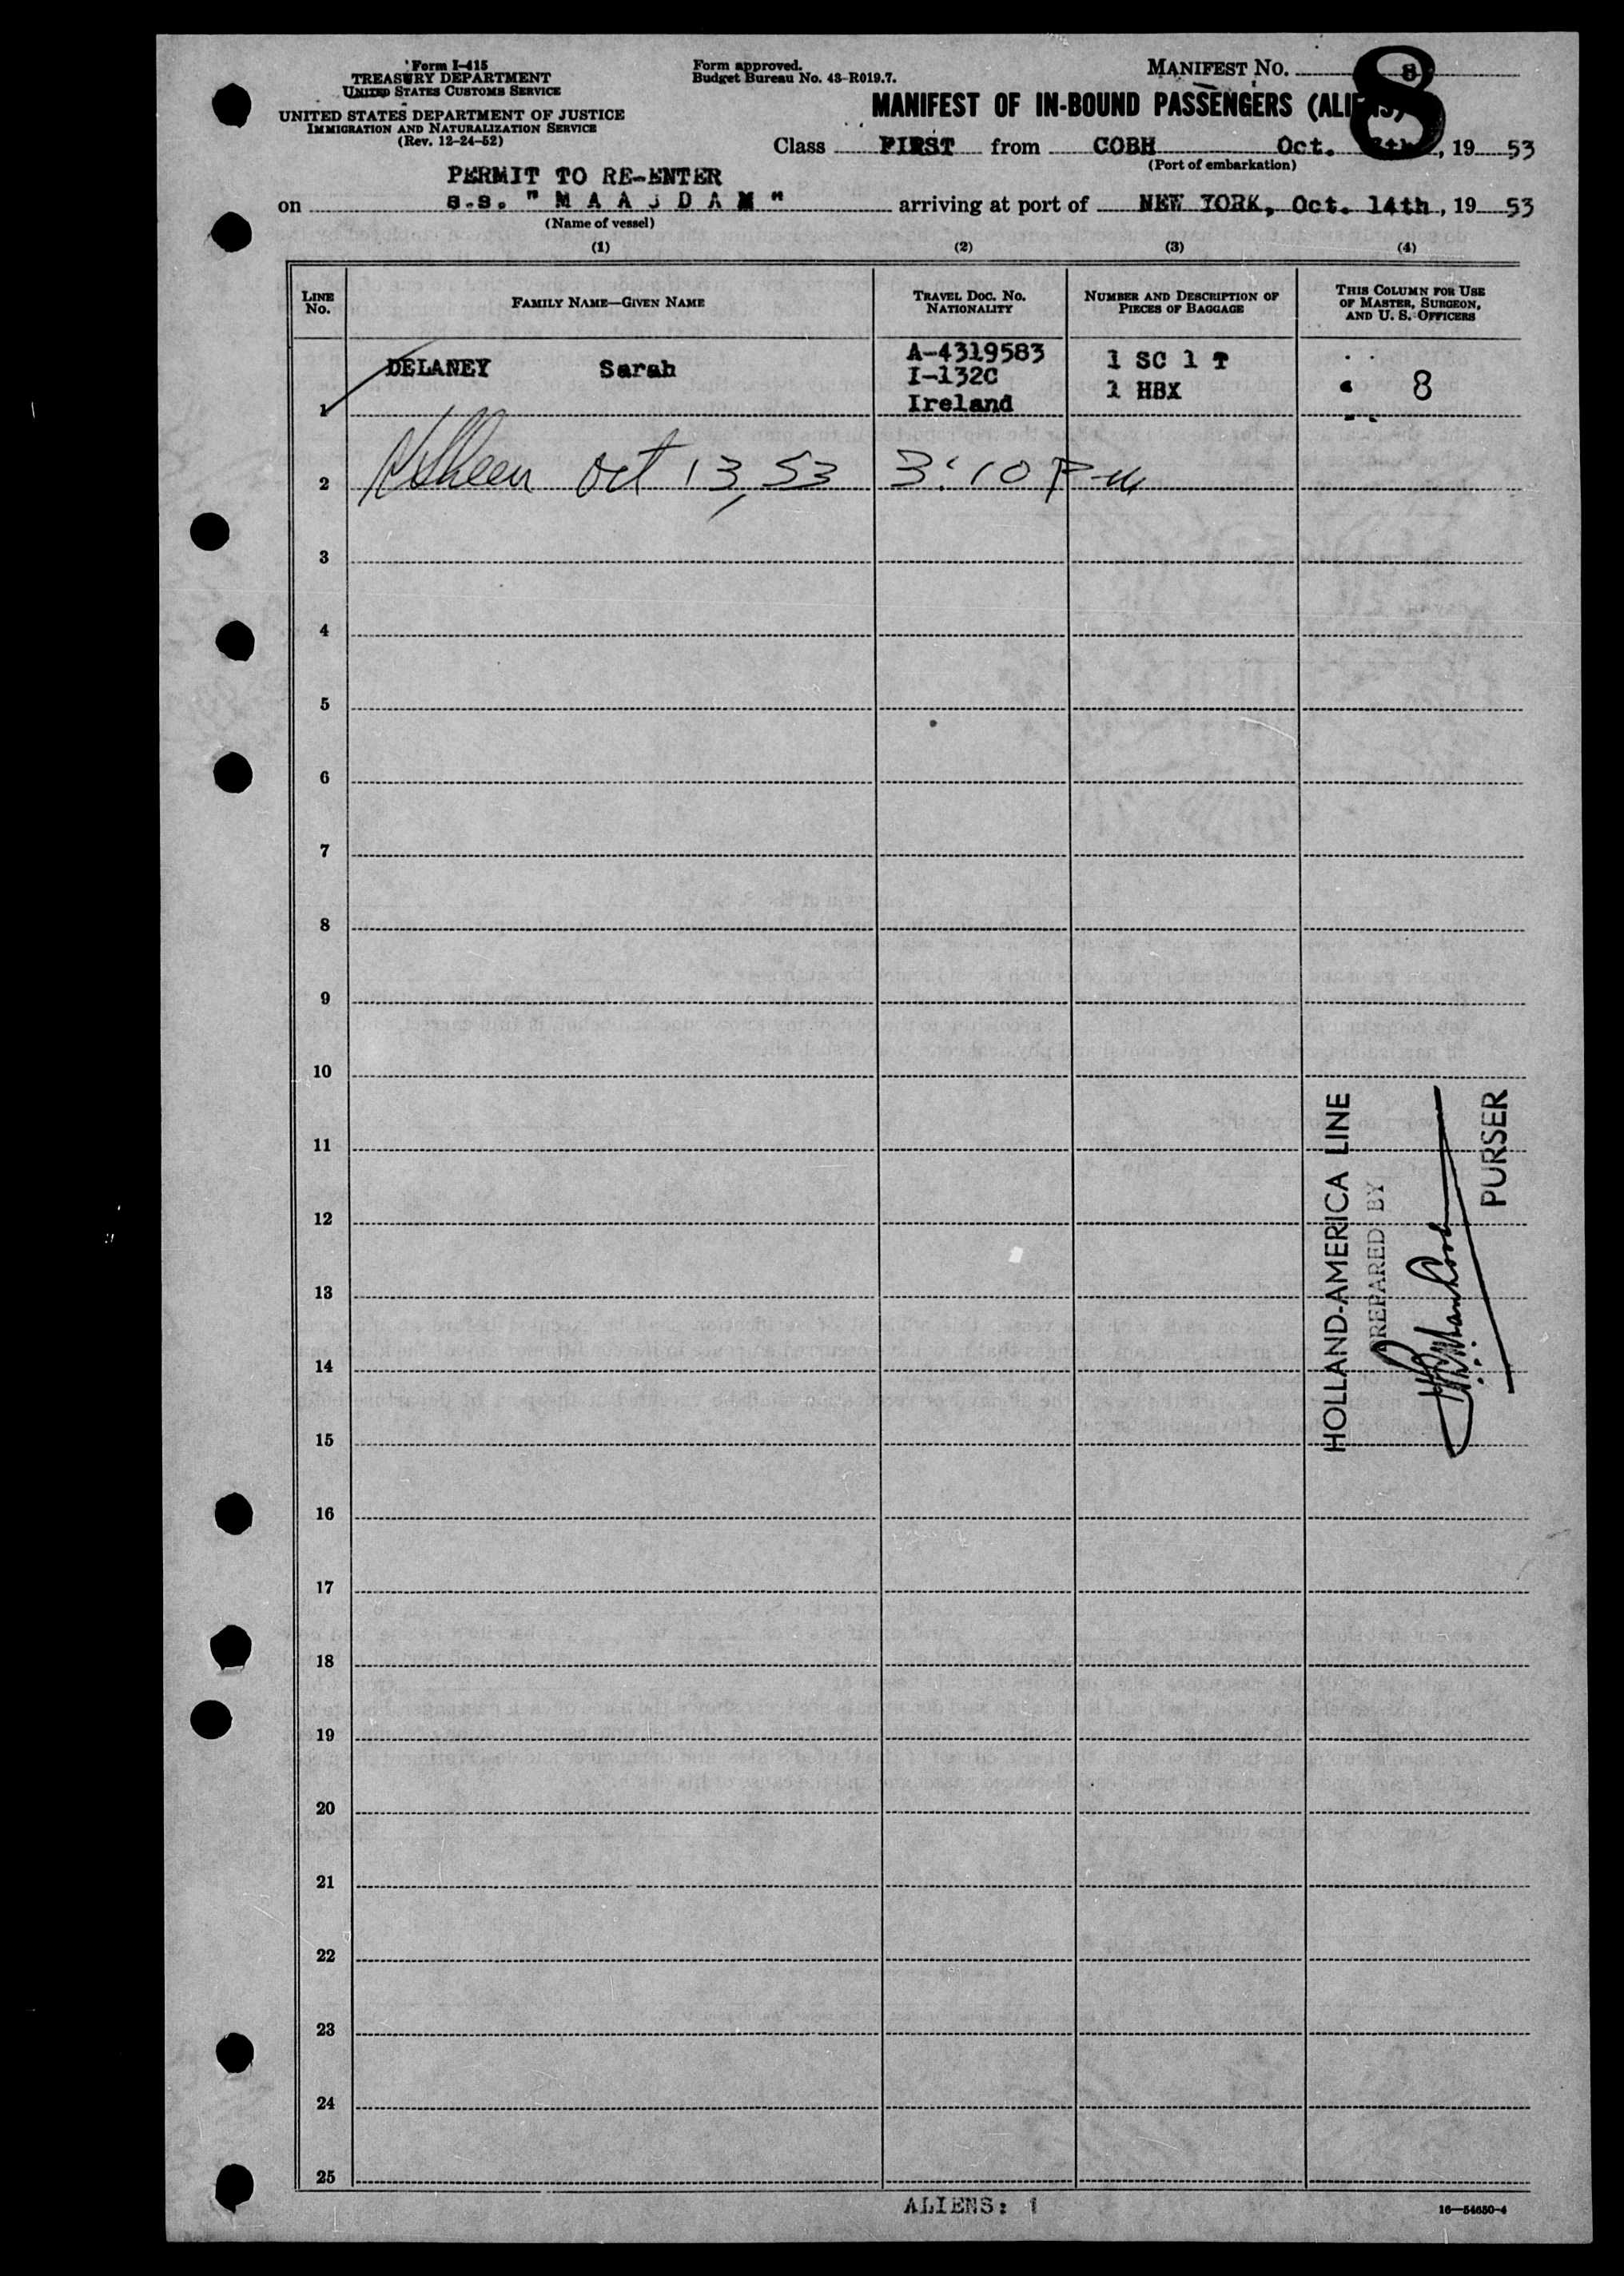 Form I-415
TREASURY DEPARTMENT
UNITED STATES CUSTOMS SERVICE
UNITED STATES DEPARTMENT OF JUSTICE
IMMIGRATION AND NATURALIZATION SERVICE
(Rev. 12-24-52)
Form approved.
Budget Bureau No. 43-R019.7.
MANIFEST No. 8
8
MANIFEST OF IN-BOUND PASSENGERS (ALIENS)
Class FIRST from COBH Oct. , 19 53
(Port of embarkation)
PERMIT TO RE-ENTER
on s.s. " M A A S D A M " arriving at port of NEW YORK, Oct. 14th, 19 53
(Name of vessel)
(1) (2) (3) (4)
LINE No. FAMILY NAME—GIVEN NAME TRAVEL DOC. NO. NATIONALITY NUMBER AND DESCRIPTION OF PIECES OF BAGGAGE THIS COLUMN FOR USE OF MASTER, SURGEON, AND U. S. OFFICERS
1 DELANEY Sarah A-4319583 I-132C Ireland 1 SC 1 T 1 HBX 8
2 Oct 13, 53 3:10 P.M
3
4
5
6
7
8
9
10
11
12
13
14
15
16
17
18
19
20
21
22
23
24
25
HOLLAND-AMERICA LINE
PREPARED BY
PURSER
ALIENS: 1
16—54650-4